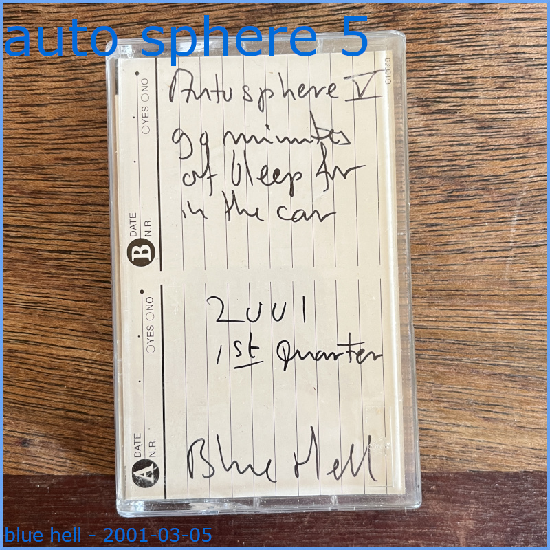 auto sphere 5
Autosphere V
99 minutes
of bleep for
in the car
2001
1st Quarter
Blue Hell
B DATE N.R. YES NO
A DATE N.R. YES NO
blue hell - 2001-03-05